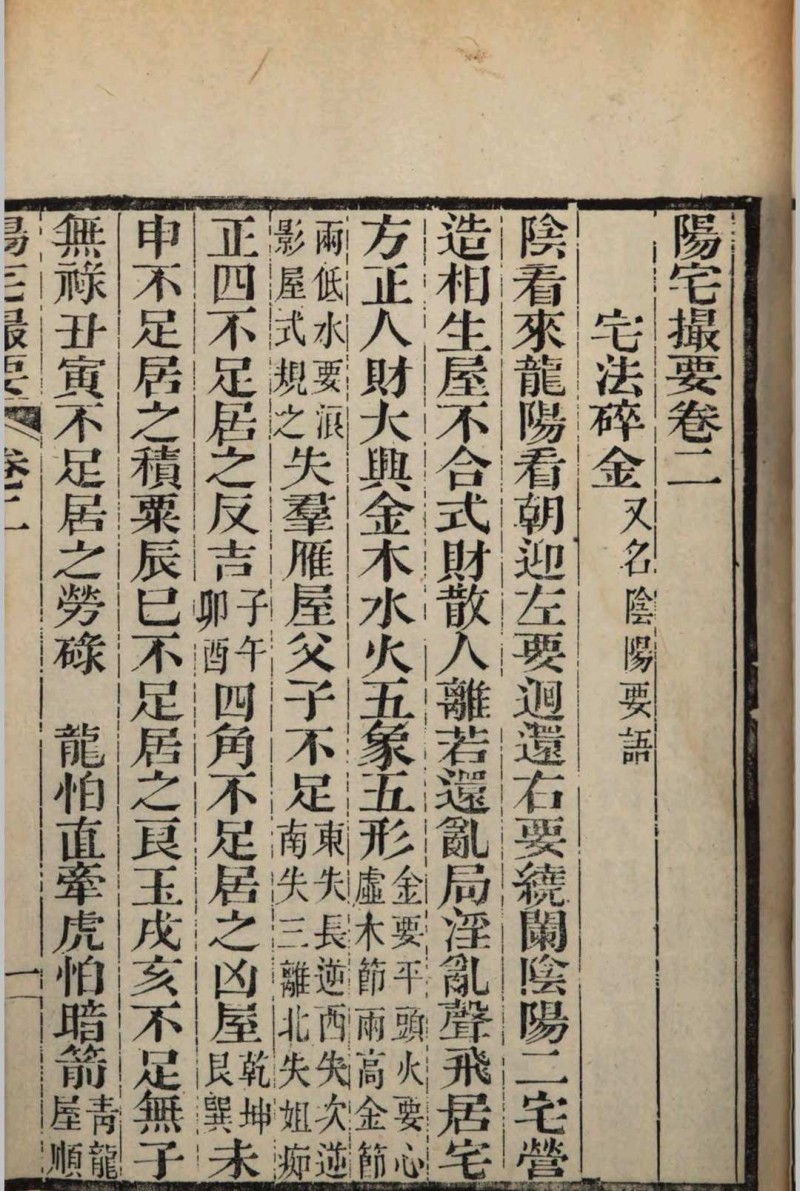 陽宅撮要卷二
宅法碎金 又名陰陽要語
陰看來龍陽看朝迎左要迴還右要繞闌陰陽二宅營
造相生屋不合式財散人離若還亂局淫亂聲飛居宅
方正人財大興金木水火五象五形 金要平頭火要心 虛木節兩高金節
兩低水要浪 影屋式規之 失羣雁屋父子不足 東失長逆西失次逆 南失三離北失姐痴
正四不足居之反吉 子午 卯酉 四角不足居之凶屋 乾坤 艮巽 未
申不足居之積粟辰巳不足居之良玉戌亥不足無子
無祿丑寅不足居之勞碌　龍怕直牽虎怕暗箭 青龍 屋順
陽宅撮要 卷二 一